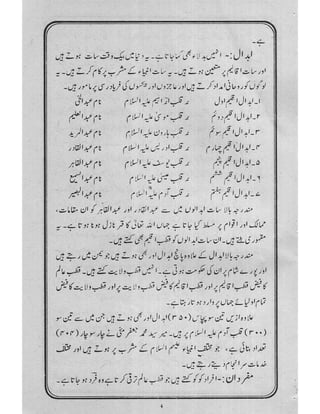 ہے۔
ابدال:۔ انہیں بدلاء بھی کہا جاتا ہے۔ یہ دنیا میں بیک وقت سات ہوتے ہیں
اور سات اقالیم پر متعین ہوتے ہیں۔ یہ سات انبیاء کے مشرب پر کام کرتے ہیں۔ یہ
لوگوں کو روحانی امداد کرتے ہیں اور عاجزوں اور بیکسوں کی فریادرسی پر مامور ہیں۔
۱۔ ابدال اقلیم اول بر قلب ابراہیم علیہ السلام نام عبدالحئی
۲۔ ابدال اقلیم دوئم بر قلب موسیٰ علیہ السلام نام عبدالعلیم
۳۔ ابدال اقلیم سوئم بر قلب ہارون علیہ السلام نام عبدالمرید
۴۔ ابدال اقلیم چہارم بر قلب ادریس علیہ السلام نام عبدالقادر
۵۔ ابدال اقلیم پنجم بر قلب یوسف علیہ السلام نام عبدالقاہر
۶۔ ابدال اقلیم ششم بر قلب عیسیٰ علیہ السلام نام عبدالسمیع
۷۔ ابدال اقلیم ہفتم بر قلب آدم علیہ السلام نام عبدالبصیر
مندرجہ بالا سات ابدالوں میں سے عبدالقادر اور عبدالقاہر کو ان مقامات،
ممالک اور اقوام پر مسلط کیا جاتا ہے جہاں اللہ تعالیٰ کا قہر نازل ہونا ہوتا ہے۔ یہ
مقہوری بنتے ہیں۔ ان سات ابدالوں کو قطب اقلیم بھی کہتے ہیں۔
مندرجہ بالا ابدال کے علاوہ پانچ ابدال اور بھی ہوتے ہیں جو یمن میں رہتے ہیں
اور پورے شام پر ان کی حکومت ہوتی ہے۔ انہیں قطب ولایت کہتے ہیں۔ قطب عالم
کا فیض قطب اقالیم پر اور قطب اقالیم کا فیض قطب ولایت پر اور قطب ولایت کا فیض
تمام اولیائے جہاں پر وارد ہوتا رہتا ہے۔
علاوہ ازیں تین سو پچاس (۳۵۰) ابدال اور بھی ہوتے ہیں جن میں سے تین سو
(۳۰۰) قلب آدم علیہ السلام پر ہیں۔ میر سید محمد جعفر مکی نے چار سو چار (۴۰۴)
تعداد بتائی ہے، جو مختلف انبیاء علیہم السلام کے مشرب پر ہوتے ہیں اور مختلف
خدمات سرانجام دیتے ہیں۔
مفردان:۔ افراد کو کہتے ہیں جو قطب عالم ترقی کرتا ہے وہ فرد ہو جاتا ہے۔
4